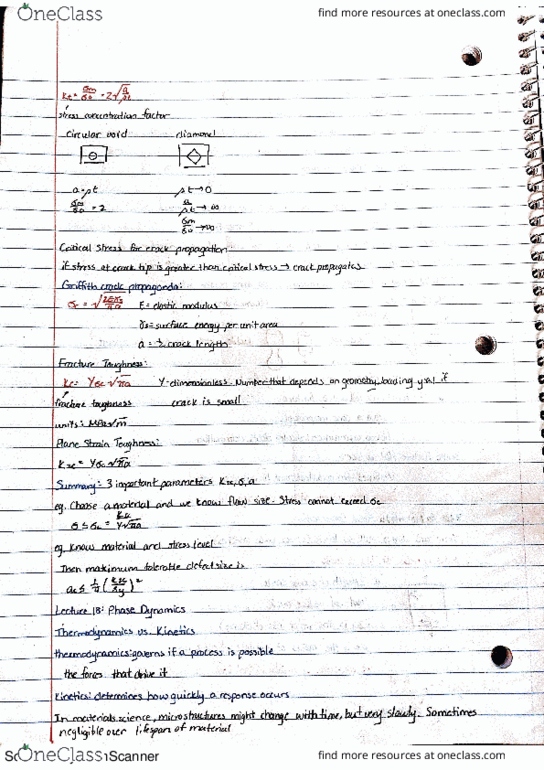 OneClass
find more resources at oneclass.com
Kt = σm/σo = 2√(a/ρt)
stress concentration factor
circular void diamond
a = ρt ρt → 0
σm/σo = 2 a/ρt → ∞
σm/σo → ∞
Critical Stress for crack propagation:
if stress at crack tip is greater than critical stress → crack propagates
Griffith crack propaganda:
σc = √(2Eγs/πa) E = elastic modulus
γs = surface energy per unit area
a = ½ crack length
Fracture Toughness:
Kc = Yσc√πa Y-dimensionless. Number that depends on geometry, loading y≈1 if
fracture toughness crack is small
units: MPa√m
Plane Strain Toughness:
KIc = Yσ√πa
Summary: 3 important parameters KIc, σ, a
eg. Choose a material and we know flaw size. Stress cannot exceed σc
σ ≤ σc = KIc/Y√πa
eg. Know material and stress level
Then maximum tolerable defect size is
ac ≤ 1/π (KIc/σY)²
Lecture 18: Phase Dynamics
Thermodynamics vs. Kinetics
thermodynamics: governs if a process is possible
the forces that drive it
Kinetics: determines how quickly a response occurs
In materials science, microstructures might change with time, but very slowly. Sometimes
negligible over lifespan of material
OneClass
Scanner
find more resources at oneclass.com